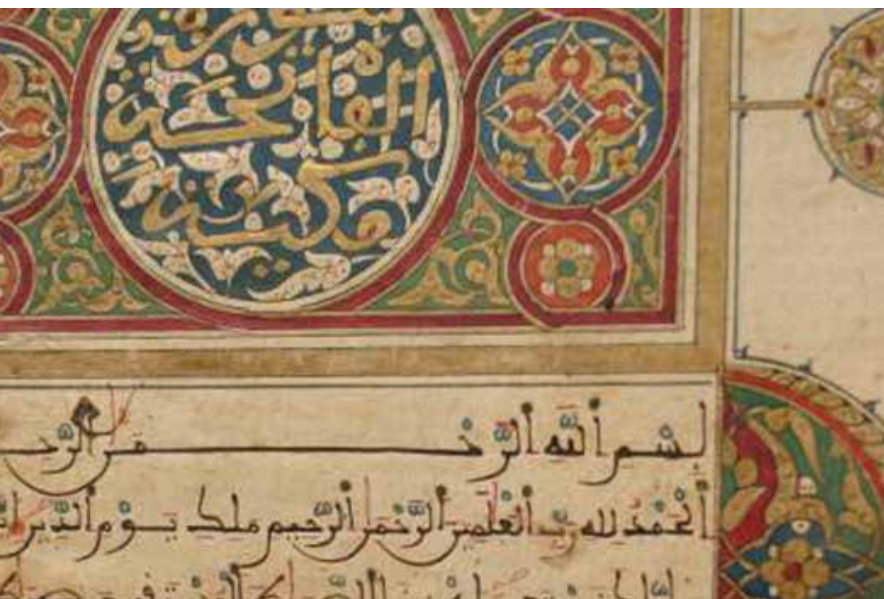 سورة
الفاتحة
مكية
بسم الله الرحمن الرحـ
الحمد لله رب العلمين الرحمن الرحيم ملك يوم الدين